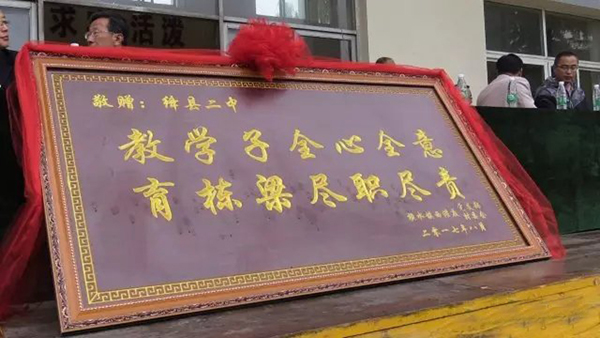 求 活泼
敬赠：绛县二中
教学子全心全意
育栋梁尽职尽责
二零一七年八月